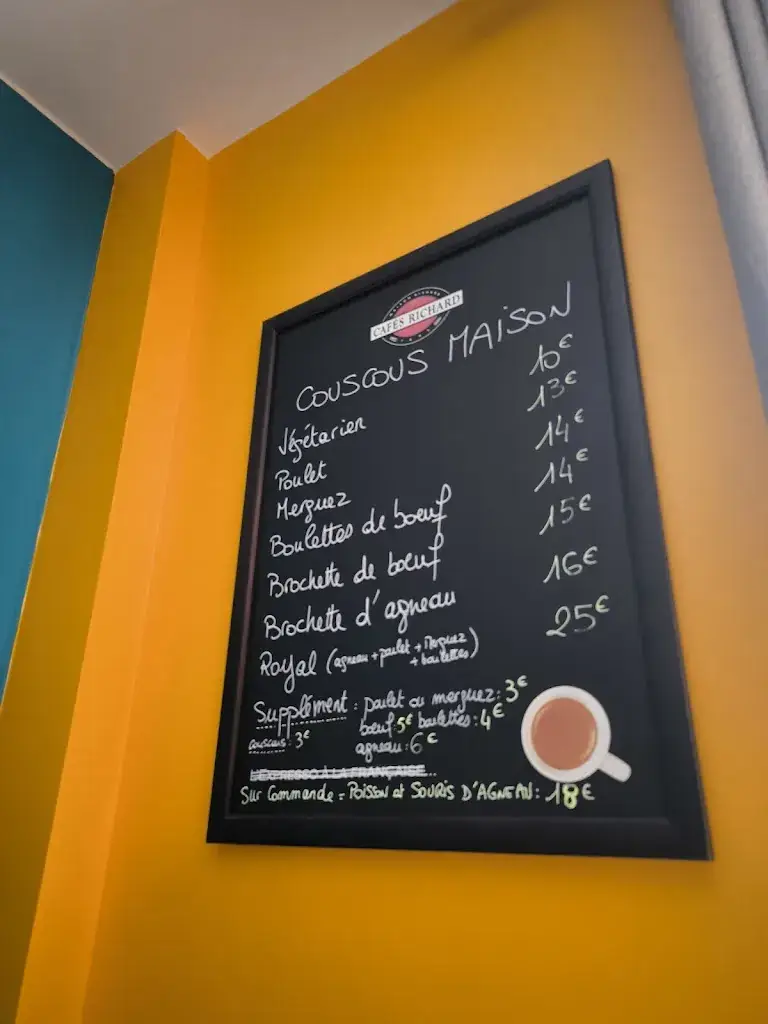 CAFÉS RICHARD
COUSCOUS MAISON
Végétarien 10€
Poulet 13€
Merguez 14€
Boulettes de boeuf 14€
Brochette de boeuf 15€
Brochette d'agneau 16€
Royal (agneau + poulet + Merguez + boulettes) 25€
Supplément : poulet ou merguez : 3€
boeuf : 5€ boulettes : 4€
couscous : 3€ agneau : 6€
L'EXPRESSO À LA FRANÇAISE...
Sur Commande = POISSON et SOURIS D'AGNEAU : 18€